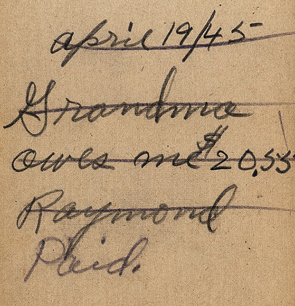 april 19/45
Grandma
owes me $20.55
Raymond
Paid.